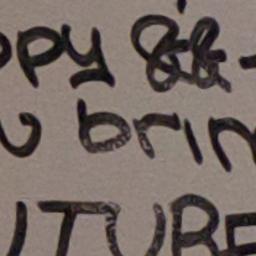 ppy &
u brin
UTURE